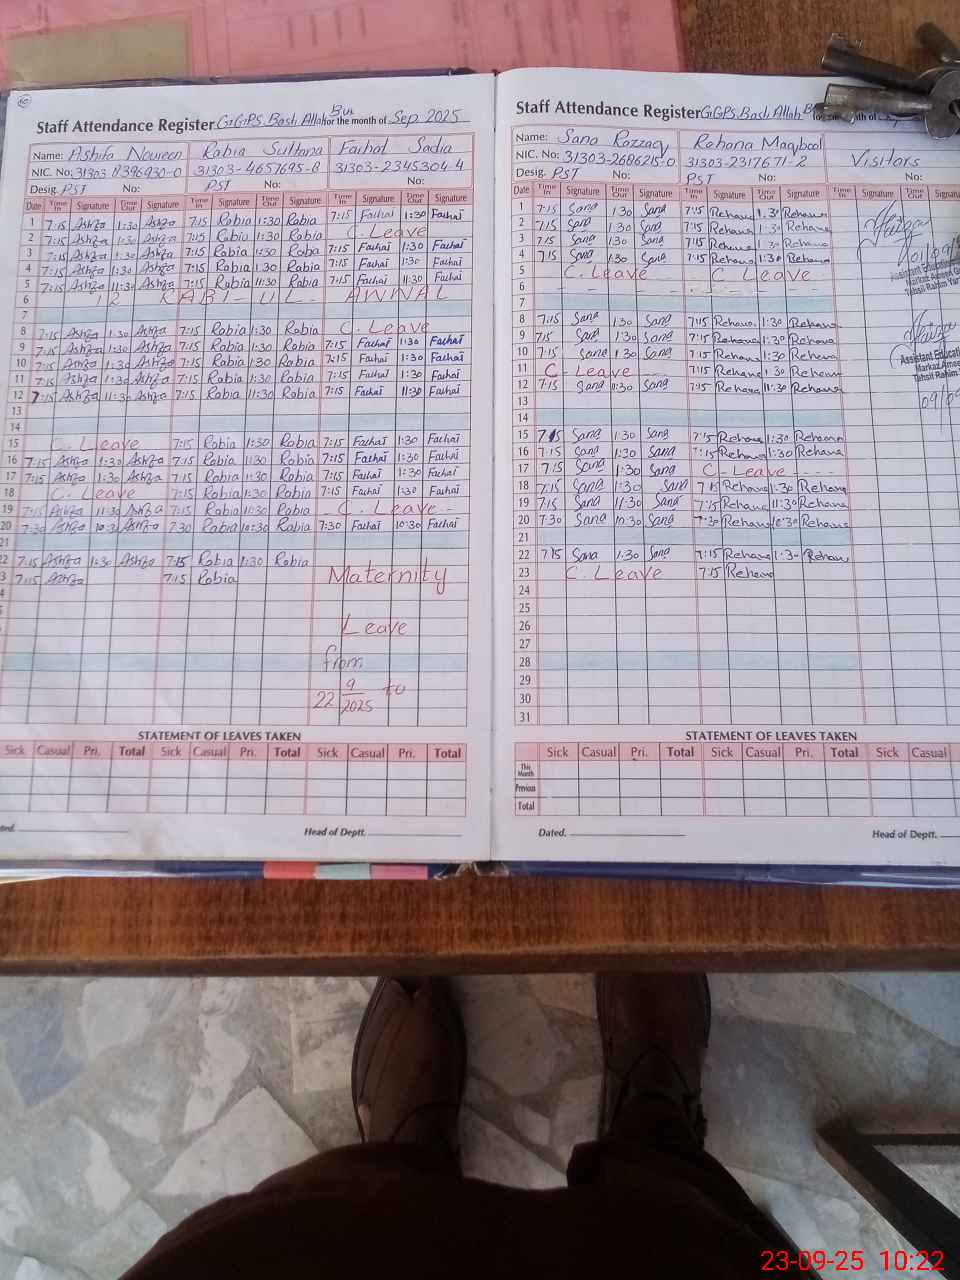 Staff Attendance Register G.G.P.S. Basti Allah Bux for the month of Sep 2025
Name: Ashifa Noureen Rabia Sultana Farhat Sadia
NIC. No: 31303 8396930-0 31303-4657695-8 31303-2345304-4
Desig. PST No: PST No: No:
Date Time In Signature Time Out Signature Time In Signature Time Out Signature Time In Signature Time Out Signature
1 7:15 1:30 7:15 Rabia 1:30 Rabia 7:15 Farhat 1:30 Farhat
2 7:15 1:30 7:15 Rabia 1:30 Rabia C. Leave
3 7:15 1:30 7:15 Rabia 1:30 Rabia 7:15 Farhat 1:30 Farhat
4 7:15 1:30 7:15 Rabia 1:30 Rabia 7:15 Farhat 1:30 Farhat
5 7:15 11:30 7:15 Rabia 11:30 Rabia 7:15 Farhat 11:30 Farhat
6 12 RABI-UL-AWWAL
7
8 7:15 1:30 7:15 Rabia 1:30 Rabia C. Leave
9 7:15 1:30 7:15 Rabia 1:30 Rabia 7:15 Farhat 1:30 Farhat
10 7:15 1:30 7:15 Rabia 1:30 Rabia 7:15 Farhat 1:30 Farhat
11 7:15 1:30 7:15 Rabia 1:30 Rabia 7:15 Farhat 1:30 Farhat
12 7:15 11:30 7:15 Rabia 11:30 Rabia 7:15 Farhat 11:30 Farhat
13
14
15 C. Leave 7:15 Rabia 1:30 Rabia 7:15 Farhat 1:30 Farhat
16 7:15 1:30 7:15 Rabia 1:30 Rabia 7:15 Farhat 1:30 Farhat
17 7:15 1:30 7:15 Rabia 1:30 Rabia 7:15 Farhat 1:30 Farhat
18 C. Leave 7:15 Rabia 1:30 Rabia 7:15 Farhat 1:30 Farhat
19 7:15 11:30 7:15 Rabia 11:30 Rabia C. Leave
20 7:30 10:30 7:30 Rabia 10:30 Rabia 7:30 Farhat 10:30 Farhat
21
22 7:15 1:30 7:15 Rabia 1:30 Rabia
7:15 7:15 Rabia Maternity
Leave
from
22 9/2025 to
STATEMENT OF LEAVES TAKEN
Sick Casual Pri. Total Sick Casual Pri. Total Sick Casual Pri. Total
Head of Deptt.
Staff Attendance Register G.G.P.S. Basti Allah
Name: Sana Razzaq Rehana Maqbool
NIC. No: 31303-2686215-0 31303-2317671-2 Visitors
Desig. PST No: PST No: No:
Date Time In Signature Time Out Signature Time In Signature Time Out Signature Time In Signature Time Out
1 7:15 Sana 1:30 Sana 7:15 Rehana 1:30 Rehana
2 7:15 Sana 1:30 Sana 7:15 Rehana 1:30 Rehana
3 7:15 Sana 1:30 Sana 7:15 Rehana 1:30 Rehana
4 7:15 Sana 1:30 Sana 7:15 Rehana 1:30 Rehana
5 C. Leave C. Leave
6
7
8 7:15 Sana 1:30 Sana 7:15 Rehana 1:30 Rehana
9 7:15 Sana 1:30 Sana 7:15 Rehana 1:30 Rehana
10 7:15 Sana 1:30 Sana 7:15 Rehana 1:30 Rehana
11 C. Leave 7:15 Rehana 1:30 Rehana
12 7:15 Sana 11:30 Sana 7:15 Rehana 11:30 Rehana
13
14
15 7:15 Sana 1:30 Sana 7:15 Rehana 1:30 Rehana
16 7:15 Sana 1:30 Sana 7:15 Rehana 1:30 Rehana
17 7:15 Sana 1:30 Sana C. Leave
18 7:15 Sana 1:30 Sana 7:15 Rehana 1:30 Rehana
19 7:15 Sana 11:30 Sana 7:15 Rehana 11:30 Rehana
20 7:30 Sana 10:30 Sana 7:30 Rehana 10:30 Rehana
21
22 7:15 Sana 1:30 Sana 7:15 Rehana 1:30 Rehana
23 C. Leave 7:15 Rehana
24
25
26
27
28
29
30
31
STATEMENT OF LEAVES TAKEN
Sick Casual Pri. Total Sick Casual Pri. Total Sick Casual
This Month
Previous
Total
Dated. Head of Deptt.
Assistant
Tehsil Rahim
Assistant
Tehsil Rahim
23-09-25 10:22